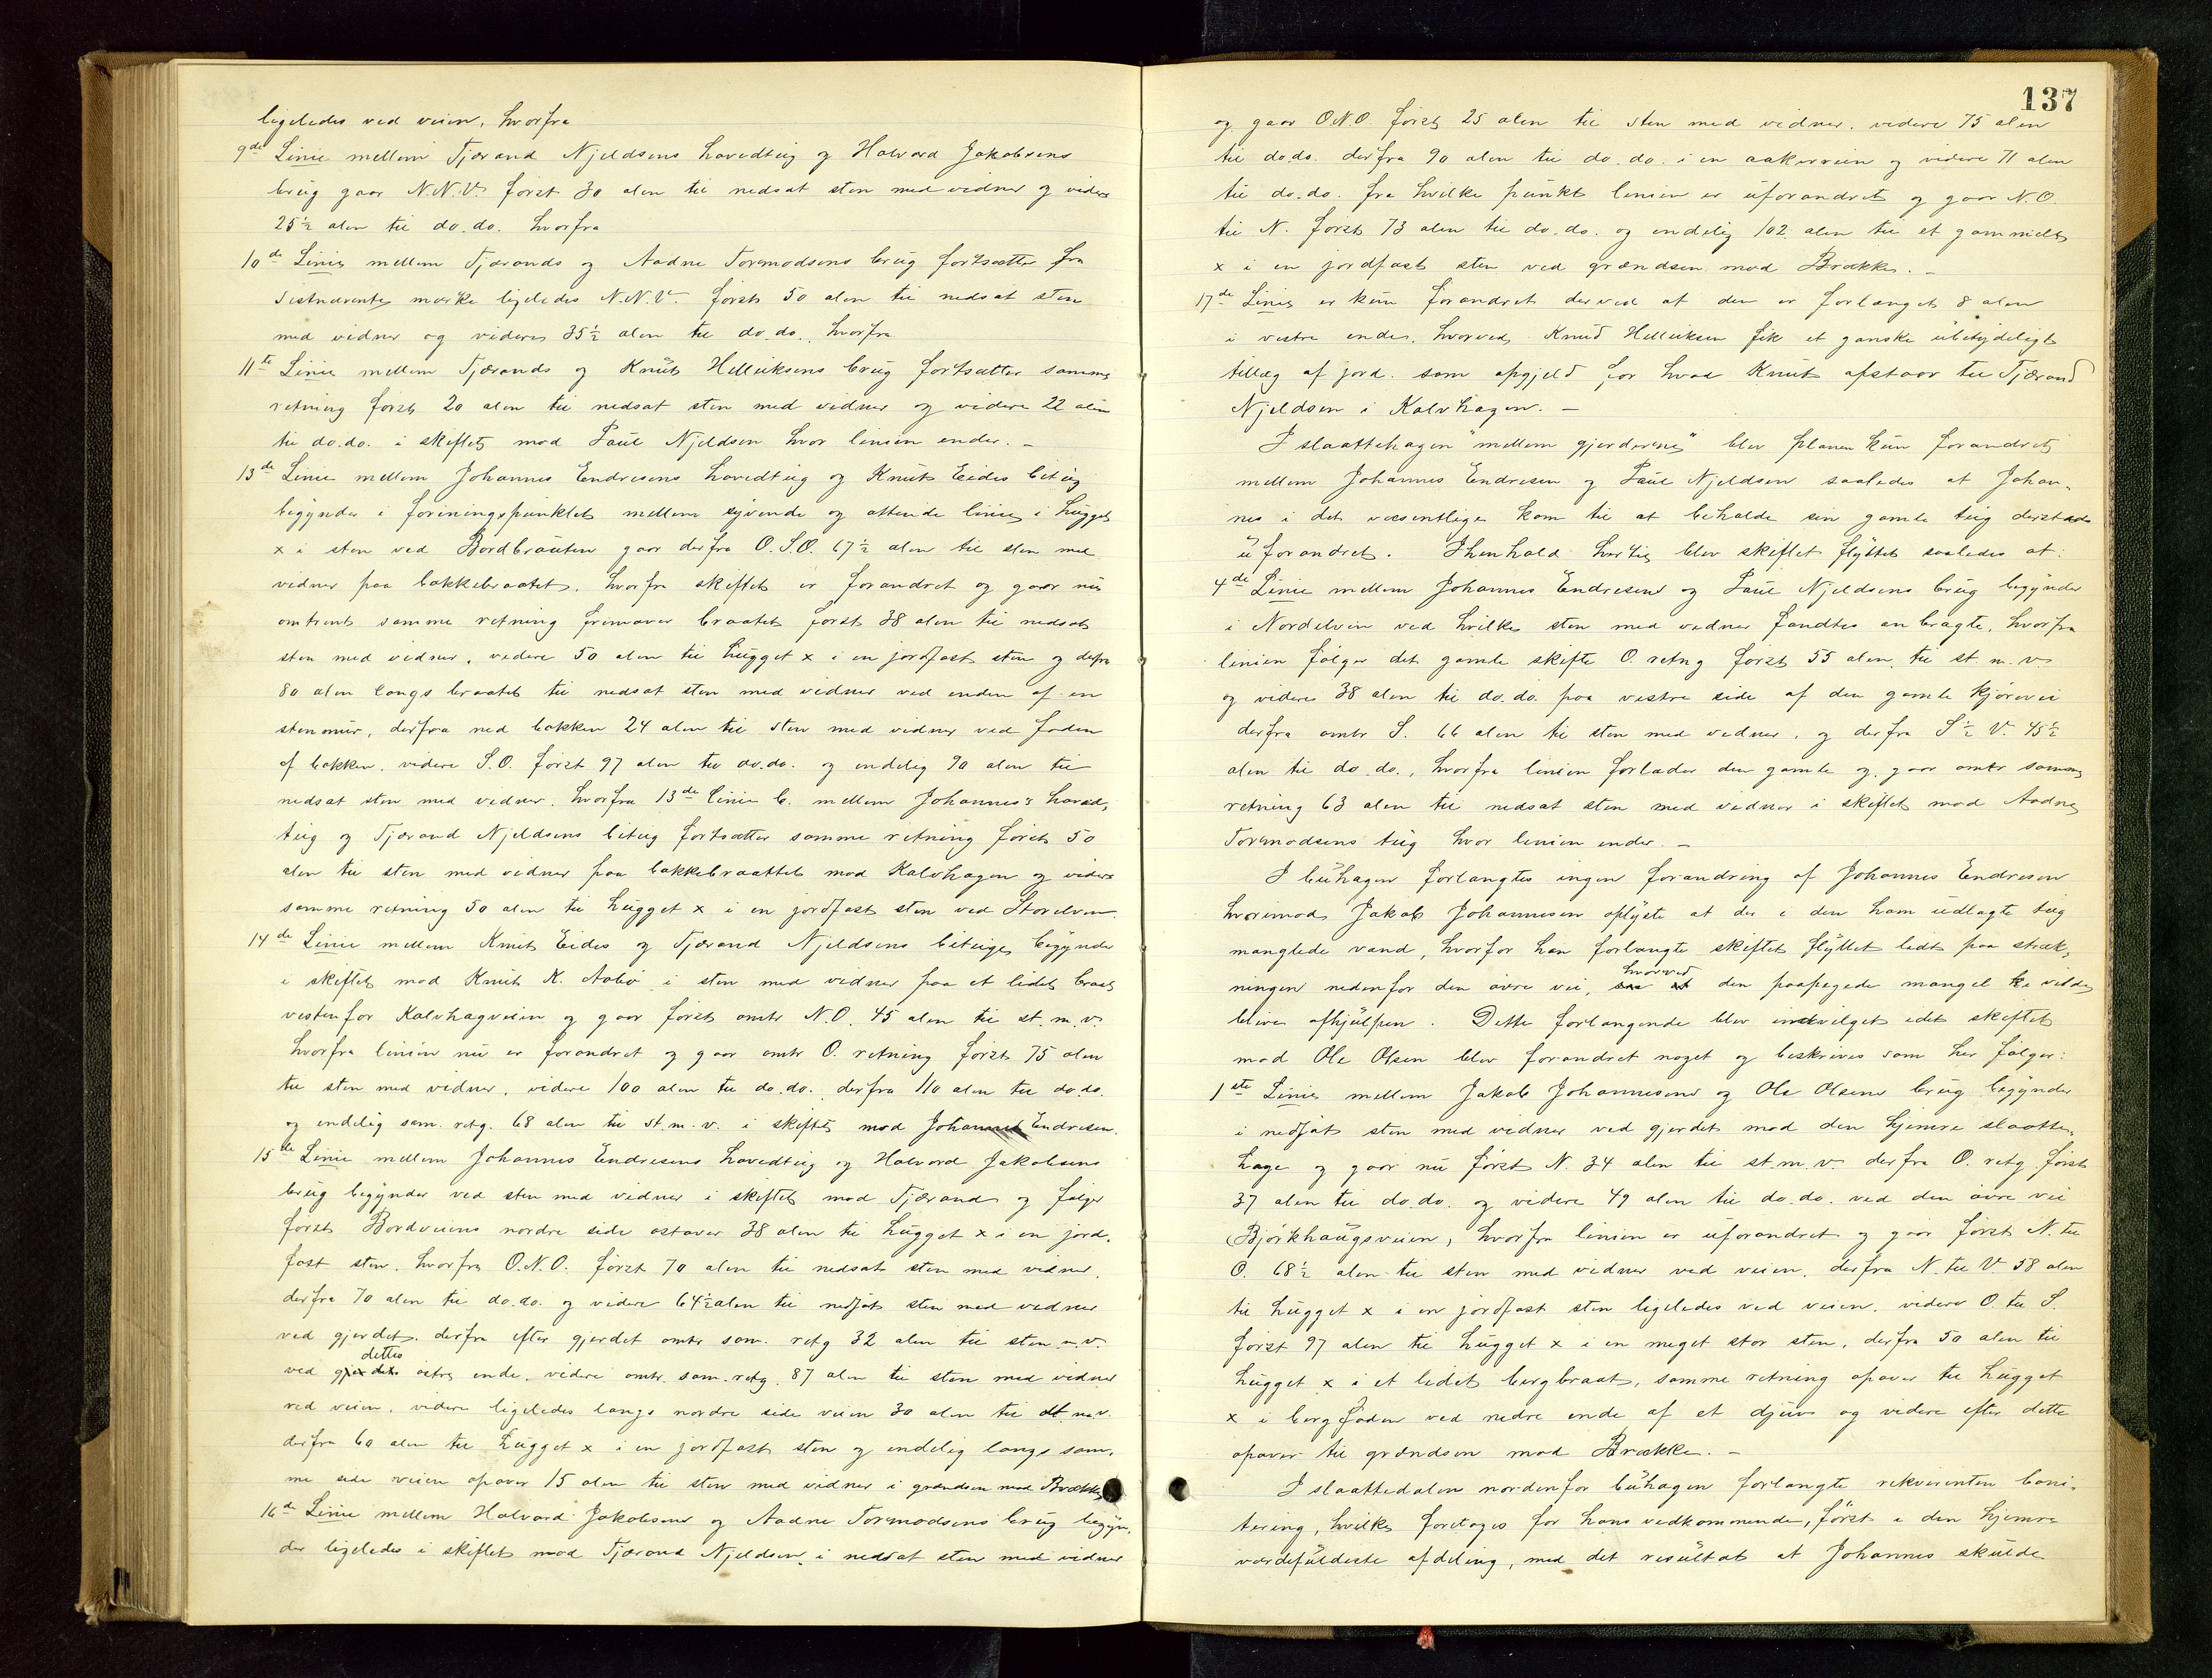 ligeledes ved veien, hvorfra
9de Linie mellem Tjærand Njeldsens hovedteig og Halvard Jakobsens
brug gaar N.N.V. først 30 alen til nedsat sten med vidner og videre
25½ alen til do. do. hvorfra
10de Linie mellem Tjærands og Aadne Tormodsens brug fortsætter fra
sistnævnte mærke ligeledes N.N.V. først 50 alen til nedsat sten
med vidner og videre 35½ alen til do. do., hvorfra
11te Linie mellem Tjærands og Knut Helliksens brug fortsætter samme
retning først 20 alen til nedsat sten med vidner og videre 22 alen
til do. do. i skiftet mod Paul Njeldsen hvor linien ender. –
13de Linie mellem Johannes Endresens hovedteig og Knut Eides biteig
begynder i foreningspunktet mellem syvende og ottende linie i hugget
x i sten ved Bordbrauten gaar derfra O.S.O. 67½ alen til sten med
vidner paa bakkebraatet, hvorfra skiftet er forandret og gaar nu
omtrent samme retning fremover braatet først 38 alen til nedsat
sten med vidner, videre 50 alen til hugget x i en jordfast sten og defra
80 alen langs braatet til nedsat sten med vidner ved enden af en
stenmur, derfra ned bakken 24 alen til sten med vidner ved foden
af bakken, videre S.O. først 97 alen til do. do. og endelig 90 alen til
nedsat sten med vidner. hvorfra 13de linie b. mellem Johannes's hoved-
teig og Tjærand Njeldsens biteig fortsætter samme retning først 50
alen til sten med vidner paa bakkebraattet mod Kalvhagen og videre
samme retning 50 alen til hugget x i en jordfast sten ved Storelven.
14de Linie mellem Knut Eides og Tjærand Njeldsens biteige begynder
i skiftet mod Knut K. Aabø i sten med vidner paa et lidet braat
vestenfor Kalvhagveien og gaar først omtr N.O. 45 alen til st. m. v.
hvorfra linien nu er forandret og gaar omtr O. retning først 75 alen
til sten med vidner, videre 100 alen til do. do. derfra 110 alen til do. do.
og endelig sam. retg. 68 alen til st. m. v. i skiftet mod Johannes Endresen.
15de Linie mellem Johannes Endresens hovedteig og Halvard Jakobsens
brug begynder ved sten med vidner i skiftet mod Tjærand og følger
først Bordveiens nordre side østover 38 alen til hugget x i en jord-
fast sten. hvorfra O.N.O. først 70 alen til nedsat sten med vidner,
derfra 70 alen til do. do. og videre 64½ alen til nedsat sten med vidner
ved gjerdet. derfra efter gjerdet omtr sam. retg 32 alen til sten m. v.
ved gjerdets dettes østre ende, videre omtr. sam. retg. 87 alen til sten med vidner
ved veien, videre ligeledes langs nordre side veien 30 alen til st m. v.
derfra 60 alen til hugget x i en jordfast sten og endelig langs sam-
me side veien opover 15 alen til sten med vidner i grændsen mod Brække
16de Linie mellem Halvard Jakobsens og Aadne Tormodsens brug begyn-
der ligeledes i skiftet mod Tjærand Njeldsen i nedsat sten med vidner
137
og gaar O.N.O. først 25 alen til sten med vidner, videre 75 alen
til do. do. derfra 90 alen til do. do. i en aakerrein og videre 71 alen
til do. do. fra hvilke punkt linien er uforandret og gaar N.O.
til N. først 73 alen til do. do. og endelig 102 alen til et gammelt
x i en jordfast sten ved grændsen mod Brække. –
17de Linie er kun forandret derved at den er forlænget 8 alen
i vestre ende, hvorved Knud Helliksen fik et ganske ubetydeligt
tillæg af jord som opgjeld for hvad Knut afstaar til Tjærand
Njeldsen i Kalvhagen. –
I slaattehagen "mellem gjerderne" blev planen kun forandret
mellem Johannes Endresen og Paul Njeldsen saaledes at Johan-
nes i det væsentlige kom til at beholde sin gamle teig dersteds
uforandret. Ihenhold hertil blev skiftet flyttet saaledes at:
4de Linie mellem Johannes Endresens og Paul Njeldsens brug begynder
i Nordelven ved hvilke sten med vidner fandtes anbragte, hvorfra
linien følger det gamle skifte O. retng først 55 alen til st. m. v.
og videre 38 alen til do. do. paa vestre side af den gamle kjørevei
derfra omtr S. 66 alen til sten med vidner, og derfra S½ V. 45½
alen til do. do., hvorfra linien forlader den gamle og gaar omtr samme
retning 63 alen til nedsat sten med vidner i skiftet mod Aadne
Tormodsens teig hvor linien ender. –
I buhagen forlangtes ingen forandring af Johannes Endresen
hvoremod Jakob Johannesen oplyste at der i den ham udlagte teig
manglede vand, hvorfor han forlangte skiftet flyttet lidt paa stræk-
ningen nedenfor den øvre vei, saa at hvorved den paapegede mangel vilde
blive afhjulpen. Dette forlangende blev indvilget idet skiftet
mod Ole Olsen blev forandret noget og beskrives som her følger:
1ste Linie mellem Jakob Johannesens og Ole Olsens brug begynder
i nedsat sten med vidner ved gjerdet mod den hjemre slaatte-
hage og gaar nu først N. 34 alen til st. m. v. derfra O. retg først
37 alen til do. do. og videre 49 alen til do. do. ved den øvre vei
(Bjørkhaugsveien, hvorfra linien er uforandret og gaar først N. til
O. 68½ alen til sten med vidner ved veien, derfra N. til V. 58 alen
til hugget x i en jordfast sten ligeledes ved veien. videre O. til S.
først 97 alen til hugget x i en meget stor sten, derfra 50 alen til
hugget x i et lidet bergbraat, samme retning opover til hugget
x i bergfoden ved nedre ende af et djuv og videre efter dette
opover til grændsen mod Brække. –
I slaattedalen nordenfor buhagen forlangte rekvirenten boni-
tering, hvilke foretoges for hans vedkommende, først i den hjemre
værdefuldeste afdeling, med det resultat at Johannes skulde